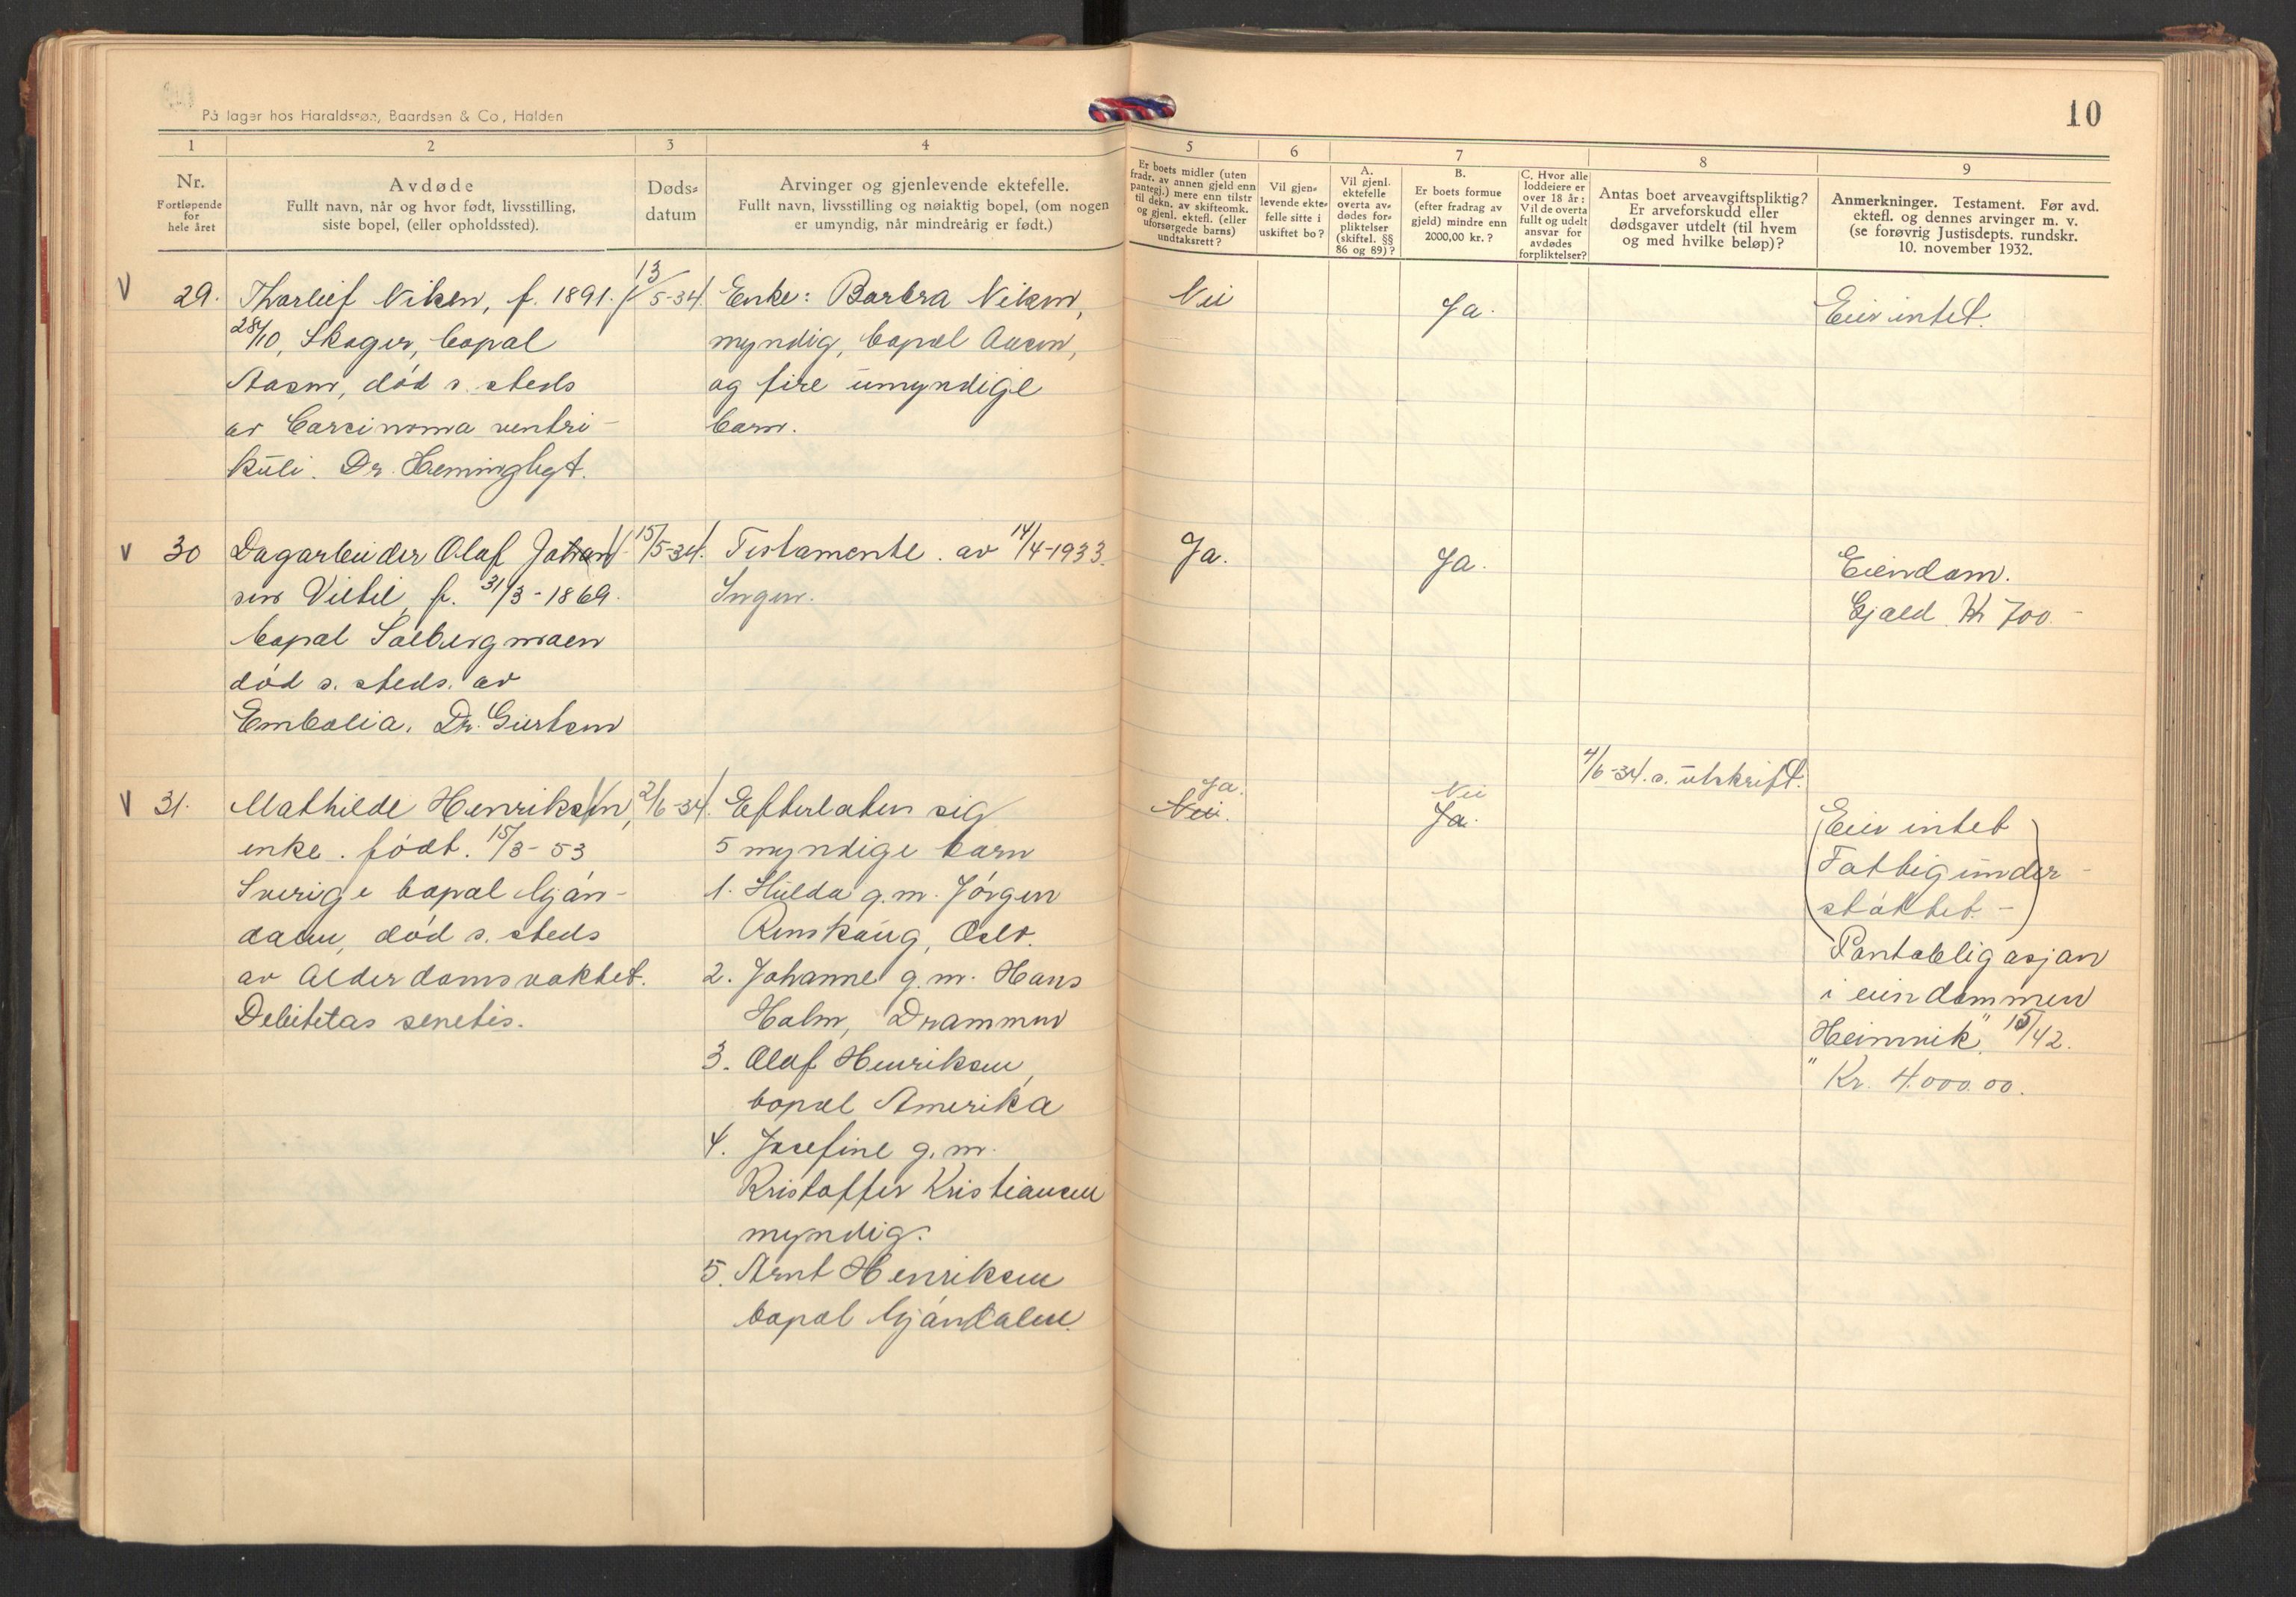 På lager hos Haraldssøn, Baardsen & Co, Halden
10
1
2
3
4
5
6
7
8
9
Nr.
Fortløpende
for
hele året
Avdøde
Fullt navn, når og hvor født, livsstilling,
siste bopel, (eller opholdssted).
Døds-
datum
Arvinger og gjenlevende ektefelle.
Fullt navn, livsstilling og nøiaktig bopel, (om nogen
er umyndig, når mindreårig er født.)
Er boets midler (uten
fradr. av annen gjeld enn
pantegj.) mere enn tilstr
til dekn. av skifteomk.
og gjenl. ektefl. (eller
uforsørgede barns)
undtaksrett?
Vil gjen-
levende ekte-
felle sitte i
uskiftet bo?
A.
Vil gjenl.
ektefelle
overta av-
dødes for-
pliktelser
(skiftel. §§
86 og 89)?
B.
Er boets formue
(efter fradrag av
gjeld) mindre enn
2000,00 kr.?
C. Hvor alle
loddeiere er
over 18 år:
Vil de overta
fullt og udelt
ansvar for
avdødes
forpliktelser?
Antas boet arveavgiftspliktig?
Er arveforskudd eller
dødsgaver utdelt (til hvem
og med hvilke beløp)?
Anmerkninger. Testament. Før avd.
ektefl. og dennes arvinger m. v.
(se forøvrig Justisdepts. rundskr.
10. november 1932.
V 29. Thorleif Viken, f. 1891.
28/10, Skoger, bopal
Aasen, död s. steds
av Carcinoma ventri-
kuli. Dr. Hemingbyt.
13/5-34.
Enke: Barbra Viken,
myndig, bopæl Aasen,
og fire umyndige
barn.
Nei
Ja.
Eier intet.
V 30 Dagarbeider Olaf Johan
sen Viebel, f. 31/3-1869.
bopal Solbergmoen
död s. steds. av
Embolia. Dr. Giertsen
15/5-34.
Testamente. av 14/4-1933.
Ingen.
Ja.
Ja.
Eiendom.
Gjæld Kr 700.-
V 31. Mathilde Henriksen,
enke. födt. 15/3-53
Sverige bopal Mjön-
dalen, död s. steds
av Alderdomsvakhet.
Debitetas senetis.
2/6-34.
Efterlater sig
5 myndige barn
1. Hulda g.m. Jörgen
Renskaug, Oslo.
2. Johanne g.m. Hans
Holm, Drammen
3. Olaf Henriksen,
bopæl Amerika
4. Josefine g.m.
Kristoffer Kristiansen
myndig.
5. Arnt Henriksen
bopal Mjöndalen.
Ja.
Nei.
Nei
Ja.
4/6-34. s. utskrift.
(Eier intet
Fattigunder-
støttet.-)
Pantobligasjon
i eiendommen
"Heimvik" 15/42.
Kr. 4.000.00.